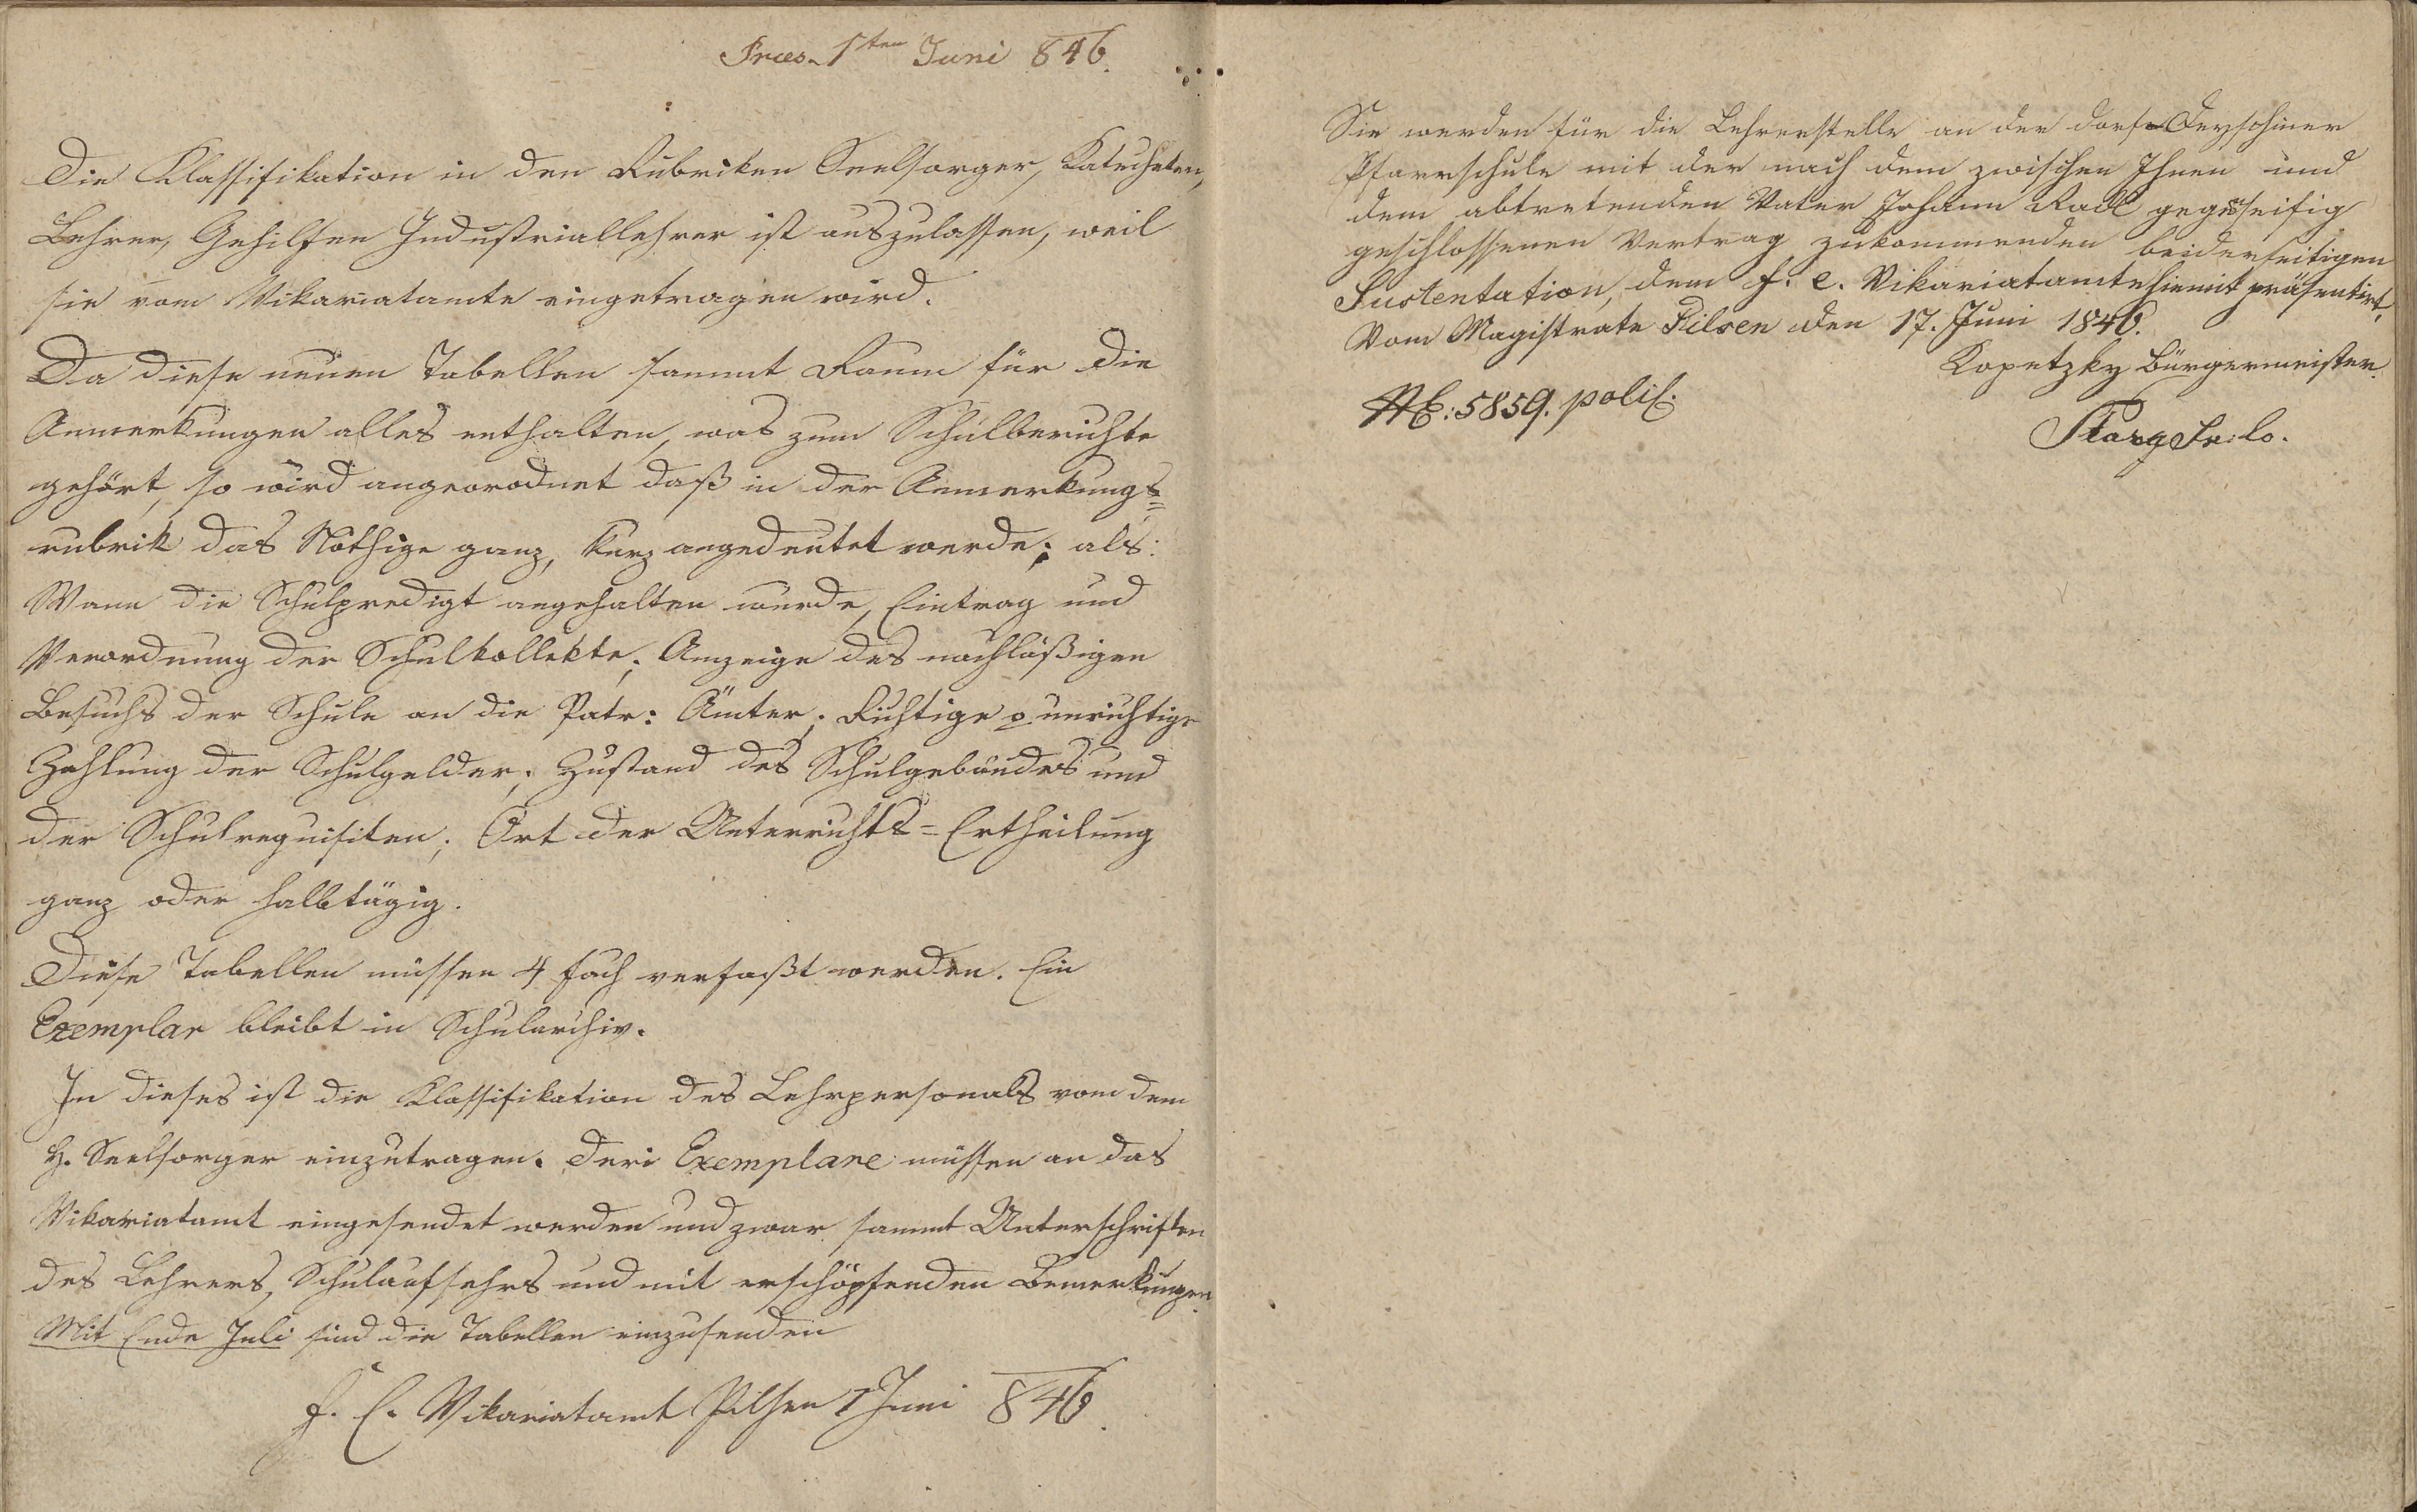 Præs. 1ten Juni 846.
Die Klassifikation in den Rubriken Seelsorger, Katecheten,
Lehrer, Gehilfen Industriallehrer ist auszulassen, weil
sie vom Vikariatamte eingetragen wird.
Da diese neuen Tabellen sammt Raum für die
Anmerkungen alles enthalten, was zum Schulberichte
gehört, so wird angeorodnet daß in der Anmerkungs=
rubrik das Nöthige ganz, kurz angedeutet werde; als:
Wann die Schulpredigt angehalten wurde, Eintrag und
Verordnung der Schulkollekte; Anzeige des nachläßigen
Besuchs der Schule an die Patr: Ämter; Richtige o unrichtige
Zahlung der Schulgelder; Zustand des Schulgebäudes und
der Schulrequisiten; Ort der Unterrichts=Ertheilung
ganz oder halbtägig.
Diese Tabellen müssen 4 fach verfaßt werden. Ein
Exemplar bleibt in Schularchiv.
In dieses ist die Klassifikation des Lehrpersonals vom dem
H. Seelsorger einzutragen. Deri Exemplare müssen an das
Vikariatamt eingesendet werden und zwar sammt Unterschriften
des Lehrers, Schulaufsehrs und mit erschöpfenden Bemerkungen.
Mit Ende Juli sind die Tabellen einzusenden
f. E. Vikariatamt Pilsen 1 Juni 846.
Sie werden für die Lehrerstelle an der dorf Deyschiner
Pfarrschule mit der nach dem zwischen Ihnen und
dem abtretenden Vater Johann Radl
geschlossenen Vertrag zukommenden beiderseitigen
Sustentation, dem f. e. Vikariatamte hiemit präsentirt.
Vom Magistrate Pilsen den 17. Juni 1846.
Kopetzky Bürgermeister.
NE: 5859. polit.